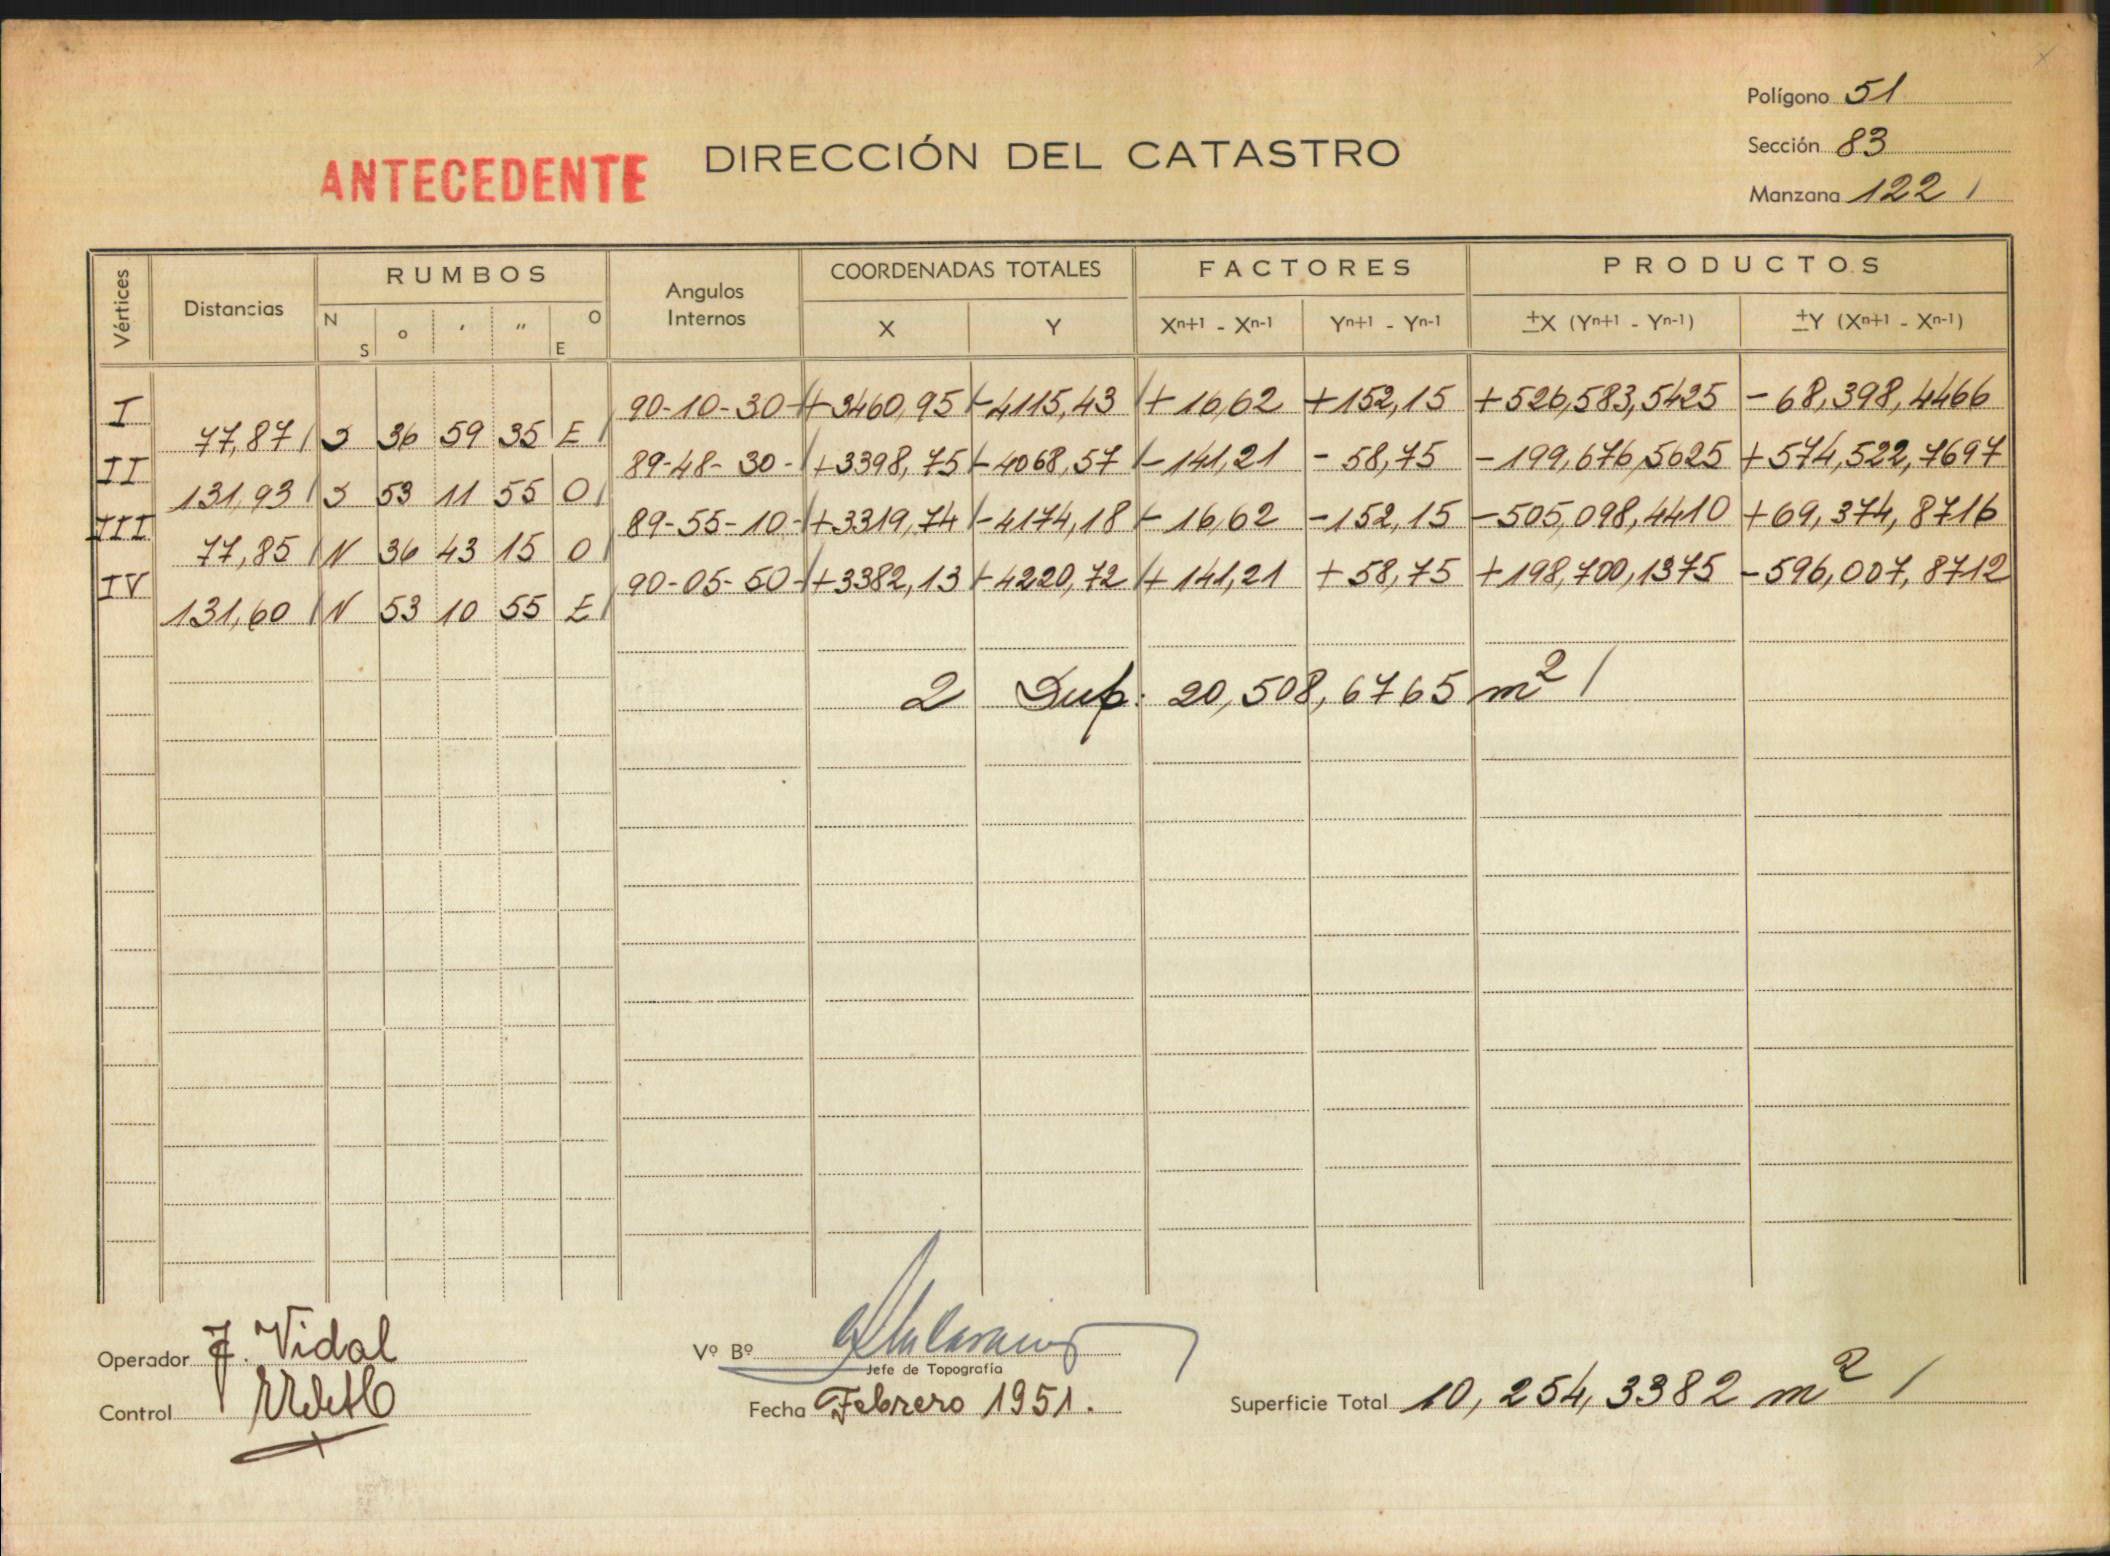 Polígono 51
ANTECEDENTE DIRECCIÓN DEL CATASTRO
Sección 83
Manzana 122 /
Vértices Distancias RUMBOS Angulos Internos COORDENADAS TOTALES FACTORES PRODUCTOS
N S o ' " O E X Y Xn+1 - Xn-1 Yn+1 - Yn-1 ±X (Yn+1 - Yn-1) ±Y (Xn+1 - Xn-1)
I 90-10-30- +3460,95 -4115,43 + 16,62 +152,15 +526,583,5425 -68,398,4466
77,87 S 36 59 35 E
II 89-48-30- +3398,75 -4068,57 -141,21 - 58,75 -199,676,5625 +574,522,7697
131,93 S 53 11 55 O
III 89-55-10- +3319,74 -4174,18 - 16,62 -152,15 -505,098,4410 +69,374,8716
77,85 N 36 43 15 O
IV 90-05-50- +3382,13 -4220,72 + 141,21 + 58,75 +198,700,1375 -596,007,8712
131,60 N 53 10 55 E
2 Sup: 20,508,6765 m2 /
Operador J. Vidal
Vº Bº
Jefe de Topografía
Control
Fecha Febrero 1951.
Superficie Total 10,254,3382 m2 /